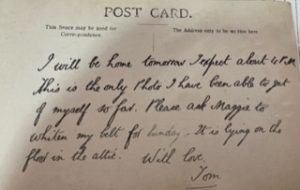 POST CARD.
This Space may be used for
Correspondence.
The Address only to be written here
I will be home tomorrow I expect about 6 P.M.
This is the only Photo I have been able to get
of myself so far. Please ask Maggie to
whiten my belt for Sunday. It is lying on the
floor in the attic. With love.
Tom